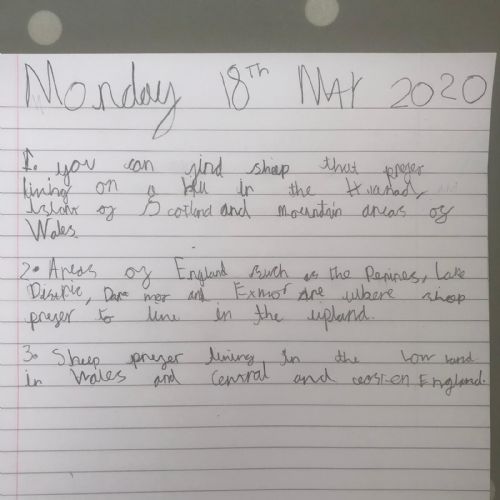 Monday 18th MAY 2020
1. you can find sheep that prefer
living on a hill in the
Islans of Scotland and mountain areas of
Wales.
2. Areas of England such as the Penines, Lake
Distric, Dart mor and Exmor are where sheep
prefer to live in the upland.
3. Sheep prefer living in the low land
in Wales and central and eastern England.